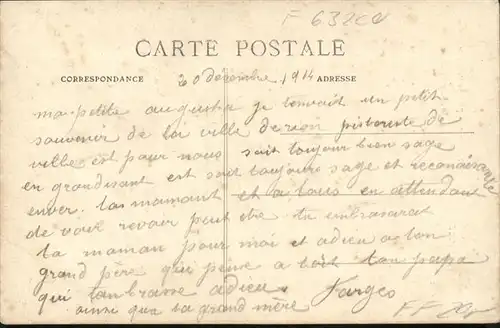 F 632
CARTE POSTALE
CORRESPONDANCE 20 décembre 1914 ADRESSE
ma petite augusta je tenvait un petit
souvenir de la ville de rion pisturute de
ville est pour nous soit toujour bien sage
en grandisant est soit toujours sage et reconaisante
enver ta mamant et a tous en attendant
de vour revoir peut etre tu enbrasarat
ta maman pour moi et adieu a ton
grand père qui pense a toit ton papa
qui tanbrasse adieu Farges
ainsie que ta grand mère